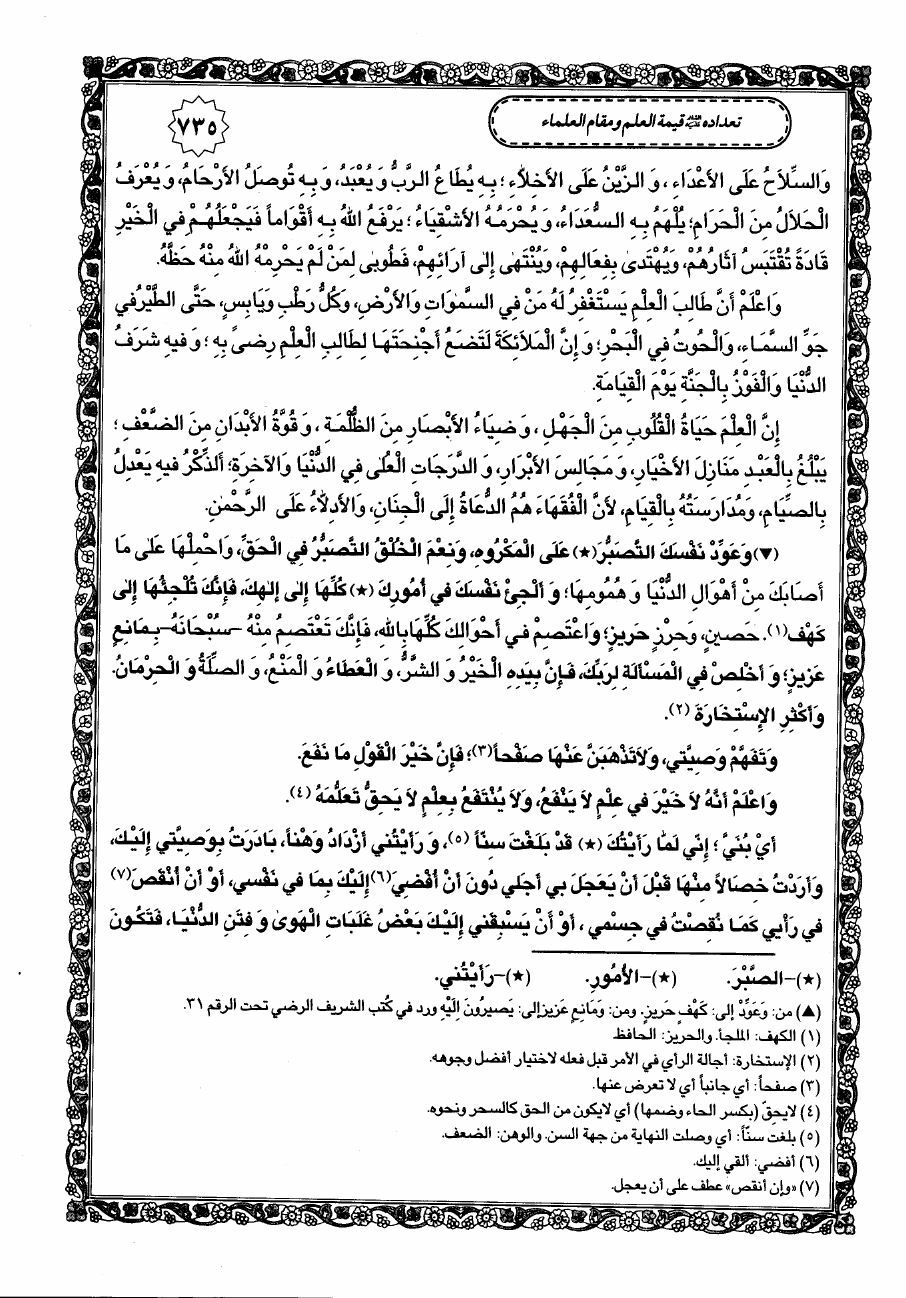 تعداده عليه السلام قيمة العلم ومقام العلماء
٧٣٥
وَالسِّلَاحُ عَلَى الأَعْدَاءِ، وَ الـزَّيْنُ عَلَى الأَخِلَّاءِ؛ بِـهِ يُطَاعُ الرَّبُّ وَ يُعْبَدُ، وَ بِـهِ تُوصَلُ الأَرْحَامُ، وَ يُعْرَفُ
الْحَلَالُ مِنَ الْحَرَامِ؛ يُلْهَمُ بِـهِ السُّعَدَاءُ، وَ يُحْرَمُهُ الأَشْقِيَاءُ؛ يَرْفَعُ اللهُ بِـهِ أَقْوَاماً فَيَجْعَلُهُـمْ فِي الْخَيْرِ
قَادَةً تُقْتَبَسُ آثَارُهُمْ، وَيُهْتَدىٰ بِفِعَالِهِمْ، وَيُنْتَهىٰ إِلىٰ آرَائِهِمْ، فَطُوبىٰ لِمَنْ لَمْ يَحْرِمْهُ اللهُ مِنْهُ حَظَّهُ.
وَاعْلَمْ أَنَّ طَالِبَ الْعِلْمِ يَسْتَغْفِرُ لَهُ مَنْ فِي السَّمٰوَاتِ وَالأَرْضِ، وَكُلُّ رَطْبٍ وَيَابِسٍ، حَتَّى الطَّيْرُ فِي
جَوِّ السَّمَاءِ، وَالْحُوتُ فِي الْبَحْرِ؛ وَ إِنَّ الْمَلَائِكَةَ لَتَضَعُ أَجْنِحَتَهَـا لِطَالِبِ الْعِلْمِ رِضىً بِهِ؛ وَ فِيهِ شَرَفُ
الدُّنْيَا وَالْفَوْزُ بِالْجَنَّةِ يَوْمَ الْقِيَامَةِ.
إِنَّ الْعِلْمَ حَيَاةُ الْقُلُوبِ مِنَ الْجَهْلِ، وَ ضِيَاءُ الأَبْصَارِ مِنَ الظُّلْمَةِ، وَ قُوَّةُ الأَبْدَانِ مِنَ الضَّعْفِ؛
يَبْلُغُ بِالْعَبْدِ مَنَازِلَ الأَخْيَارِ، وَ مَجَالِسَ الأَبْرَارِ، وَ الدَّرَجَاتِ الْعُلىٰ فِي الدُّنْيَا وَالآخِرَةِ؛ اَلذِّكْرُ فِيهِ يَعْدِلُ
بِالصِّيَامِ، وَمُدَارَسَتُهُ بِالْقِيَامِ، لأَنَّ الْفُقَهَاءَ هُمُ الدُّعَاةُ إِلَى الْجِنَانِ، وَالأَدِلَّاءُ عَلَى الرَّحْمٰنِ.
(▼) وَعَوِّدْ نَفْسَكَ التَّصَبُّرَ(★) عَلَى الْمَكْرُوهِ، وَنِعْمَ الْخُلْقُ التَّصَبُّرُ فِي الْحَقِّ، وَاحْمِلْهَا عَلىٰ مَا
أَصَابَكَ مِنْ أَهْوَالِ الدُّنْيَا وَ هُمُومِهَا؛ وَ أَلْجِئْ نَفْسَكَ فِي أُمُورِكَ (★) كُلِّهَا إِلىٰ إِلٰهِكَ، فَإِنَّكَ تُلْجِئُهَا إِلىٰ
كَهْفٍ(١). حَصِينٍ، وَحِرْزٍ حَرِيزٍ؛ وَاعْتَصِمْ فِي أَحْوَالِكَ كُلِّهَا بِاللهِ، فَإِنَّكَ تَعْتَصِمُ مِنْهُ -سُبْحَانَهُ- بِمَانِعٍ
عَزِيزٍ؛ وَ أَخْلِصْ فِي الْمَسْأَلَةِ لِرَبِّكَ، فَإِنَّ بِيَدِهِ الْخَيْرَ وَ الشَّرَّ، وَ الْعَطَاءَ وَ الْمَنْعَ، وَ الصِّلَةَ وَ الْحِرْمَانَ.
وَأَكْثِرِ الإِسْتِخَارَةَ (٢).
وَتَفَهَّمْ وَصِيَّتِي، وَلَا تَذْهَبَنَّ عَنْهَا صَفْحاً(٣)؛ فَإِنَّ خَيْرَ الْقَوْلِ مَا نَفَعَ.
وَاعْلَمْ أَنَّهُ لَا خَيْرَ فِي عِلْمٍ لَا يَنْفَعُ، وَلَا يُنْتَفَعُ بِعِلْمٍ لَا يَحِقُّ تَعَلُّمُهُ (٤).
أَيْ بُنَيَّ؛ إِنِّي لَمَّا رَأَيْتُكَ (★) قَدْ بَلَغْتَ سِنّاً (٥)، وَ رَأَيْتُنِي أَزْدَادُ وَهْناً، بَادَرْتُ بِوَصِيَّتِي إِلَيْكَ،
وَأَرَدْتُ خِصَالاً مِنْهَا قَبْلَ أَنْ يَعْجَلَ بِي أَجَلِي دُونَ أَنْ أُفْضِيَ(٦) إِلَيْكَ بِمَا فِي نَفْسِي، أَوْ أَنْ أُنْقَصَ(٧)
فِي رَأْيِي كَمَـا نُقِصْتُ فِي جِسْمِي، أَوْ أَنْ يَسْبِقَنِي إِلَيْكَ بَعْضُ غَلَبَاتِ الْهَوىٰ وَ فِتَنِ الدُّنْيَا، فَتَكُونَ
(★)-الصَّبْرَ. (★)-الأُمُورِ. (★)-رَأَيْتُنِي.
(▲) من: وَعَوِّدْ إلى: كَهْفٍ حَرِيزٍ. ومن: وَمَانِعٍ عَزِيزٍ إلى: يَصِيرُونَ إِلَيْهِ ورد في كُتب الشريف الرضي تحت الرقم ٣١.
(١) الكهف: الملجأ. والحريز: الحافظ.
(٢) الإستخارة: أجالة الرأي في الأمر قبل فعله لاختيار أفضل وجوهه.
(٣) صفحاً: أي جانباً أي لا تعرض عنها.
(٤) لايحقّ (بكسر الحاء وضمها) أي لايكون من الحق كالسحر ونحوه.
(٥) بلغت سنّاً: أي وصلت النهاية من جهة السن. والوهن: الضعف.
(٦) أفضي: ألقي إليك.
(٧) «وإن أنقص» عطف على أن يعجل.